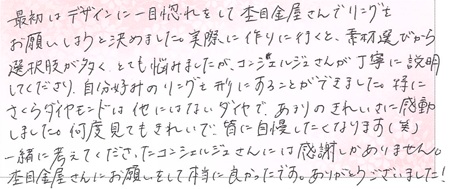 最初はデザインに一目惚れをして杢目金屋さんでリングを
お願いしようと決めました。実際に作りに行くと、素材選びから
選択肢が多く、とても悩みましたが、コンシェルジュさんが丁寧に説明
してくださり、自分好みのリングを形にすることができました。特に
さくらダイヤモンドは他にはないダイヤで、あまりのきれいさに感動
しました。何度見てもきれいで、皆に自慢したくなります(笑)
一緒に考えてくださったコンシェルジュさんには感謝しかありません。
杢目金屋さんにお願いをして本当に良かったです。ありがとうございました！